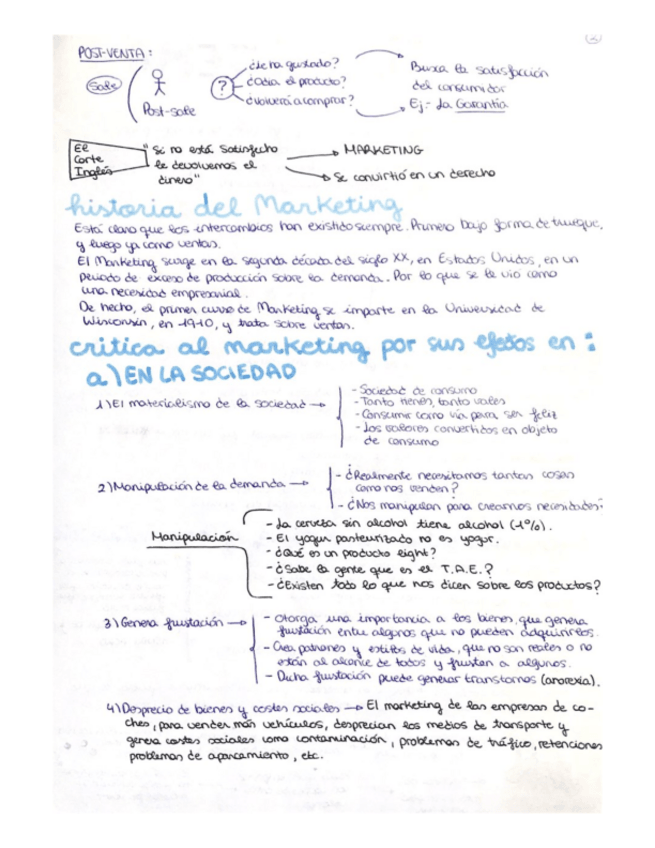 2
POST-VENTA:
Sale
Post-sale
?
¿Le ha gustado?
¿Odia el producto?
¿Volverá a comprar?
Busca la satisfacción
del consumidor
Ej:- La Garantía
El
Corte
Inglés
"Si no está satisfecho
le devolvemos el
dinero"
MARKETING
Se convirtió en un derecho
historia del Marketing
Está claro que los intercambios han existido siempre. Primero bajo forma de trueque,
y luego ya como ventas.
El Marketing surge en la segunda década del siglo XX, en Estados Unidos, en un
periodo de exceso de producción sobre la demanda. Por lo que se le vió como
una necesidad empresarial.
De hecho, el primer curso de Marketing se imparte en la Universidad de
Wisconsin, en 1910, y trata sobre ventas.
critica al marketing por sus efectos en:
a) EN LA SOCIEDAD
1) El materialismo de la sociedad →
- Sociedad de consumo
- Tanto tienes, tanto vales
- Consumir como vía para ser feliz
- Los valores convertidos en objeto
de consumo
2) Manipulación de la demanda →
- ¿Realmente necesitamos tantas cosas
como nos venden?
- ¿Nos manipulan para crearnos necesidades?
Manipulación
- La cerveza sin alcohol tiene alcohol (1%).
- El yogur pasteurizado no es yogur.
- ¿Qué es un producto light?
- ¿Sabe la gente que es el T.A.E.?
- ¿Existen todo lo que nos dicen sobre los productos?
3) Genera frustación →
- Otorga una importancia a los bienes, que genera
frustación entre algunos que no pueden adquirirlos.
- Crea patrones y estilos de vida, que no son reales o no
están al alcance de todos y frustan a algunos.
- Dicha frustación puede generar transtornos (anorexia).
4) Desprecio de bienes y costes sociales → El marketing de las empresas de co-
ches, para vender más vehículos, desprecian los medios de transporte y
genera costes sociales como contaminación, problemas de tráfico, retenciones
problemas de aparcamiento, etc.